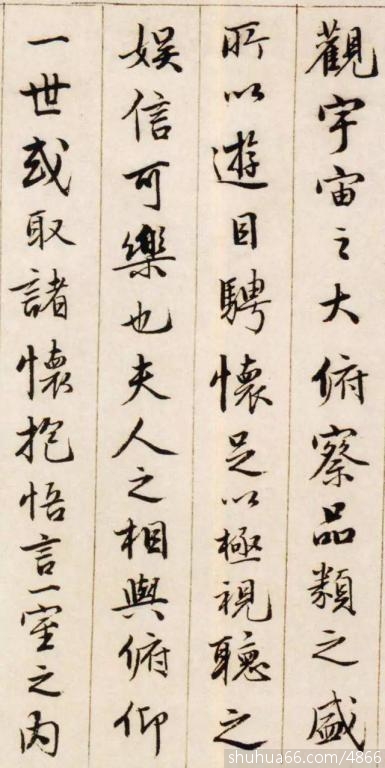 觀宇宙之大俯察品類之盛
所以遊目騁懷足以極視聽之
娛信可樂也夫人之相與俯仰
一世或取諸懷抱悟言一室之內
shuhua66.com/4866